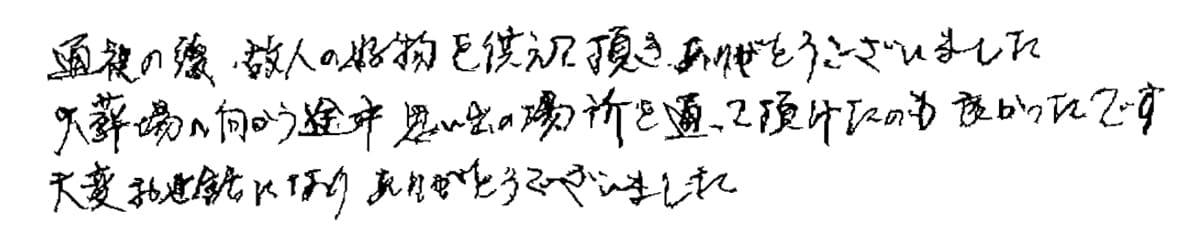 通夜の後、故人の好物を供えて頂きありがとうございました
火葬場へ向かう途中思い出の場所を通って頂けたのも良かったです
大変お世話になりありがとうございました